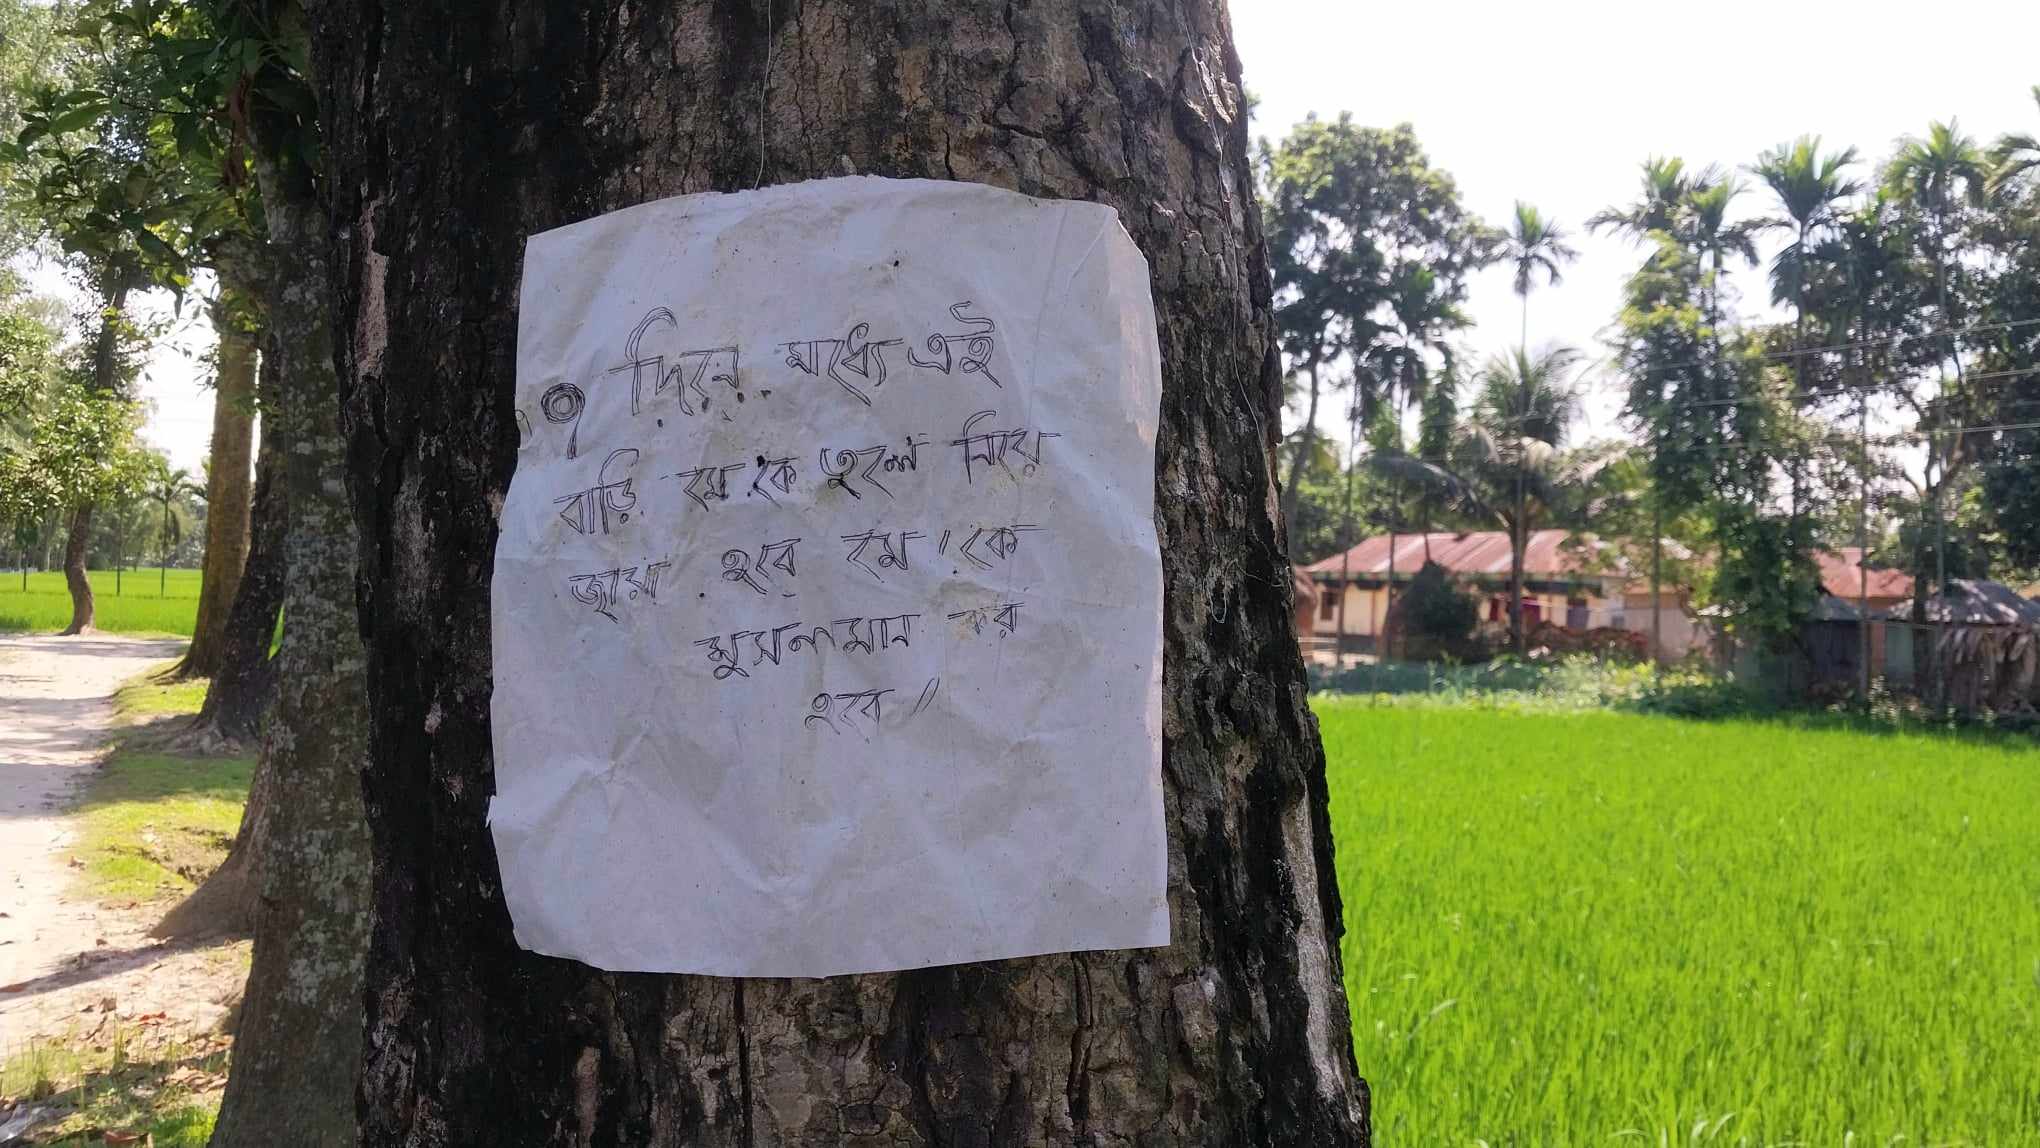 ৭ দিনে মধ্যে এই
বাড়ি মেকে তুলে নিয়ে
জায়া হবে মে।কে
মুসলমান কর
হবে।